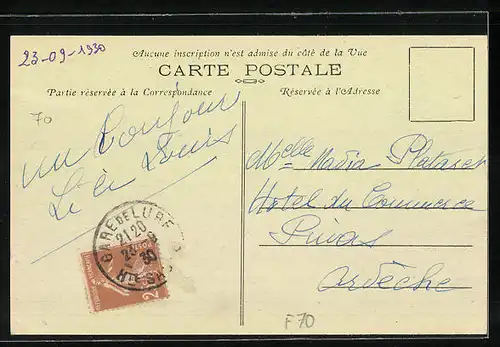 23-09-1930
Aucune inscription n'est admise du côté de la Vue
CARTE POSTALE
Partie réservée à la Correspondance
Réservée à l'Adresse
70
un Bonjour
Louis
Melle Nadia
Hotel du Commerce
Privas
Ardèche
GARE DE LURE
21 20
23
30
F70